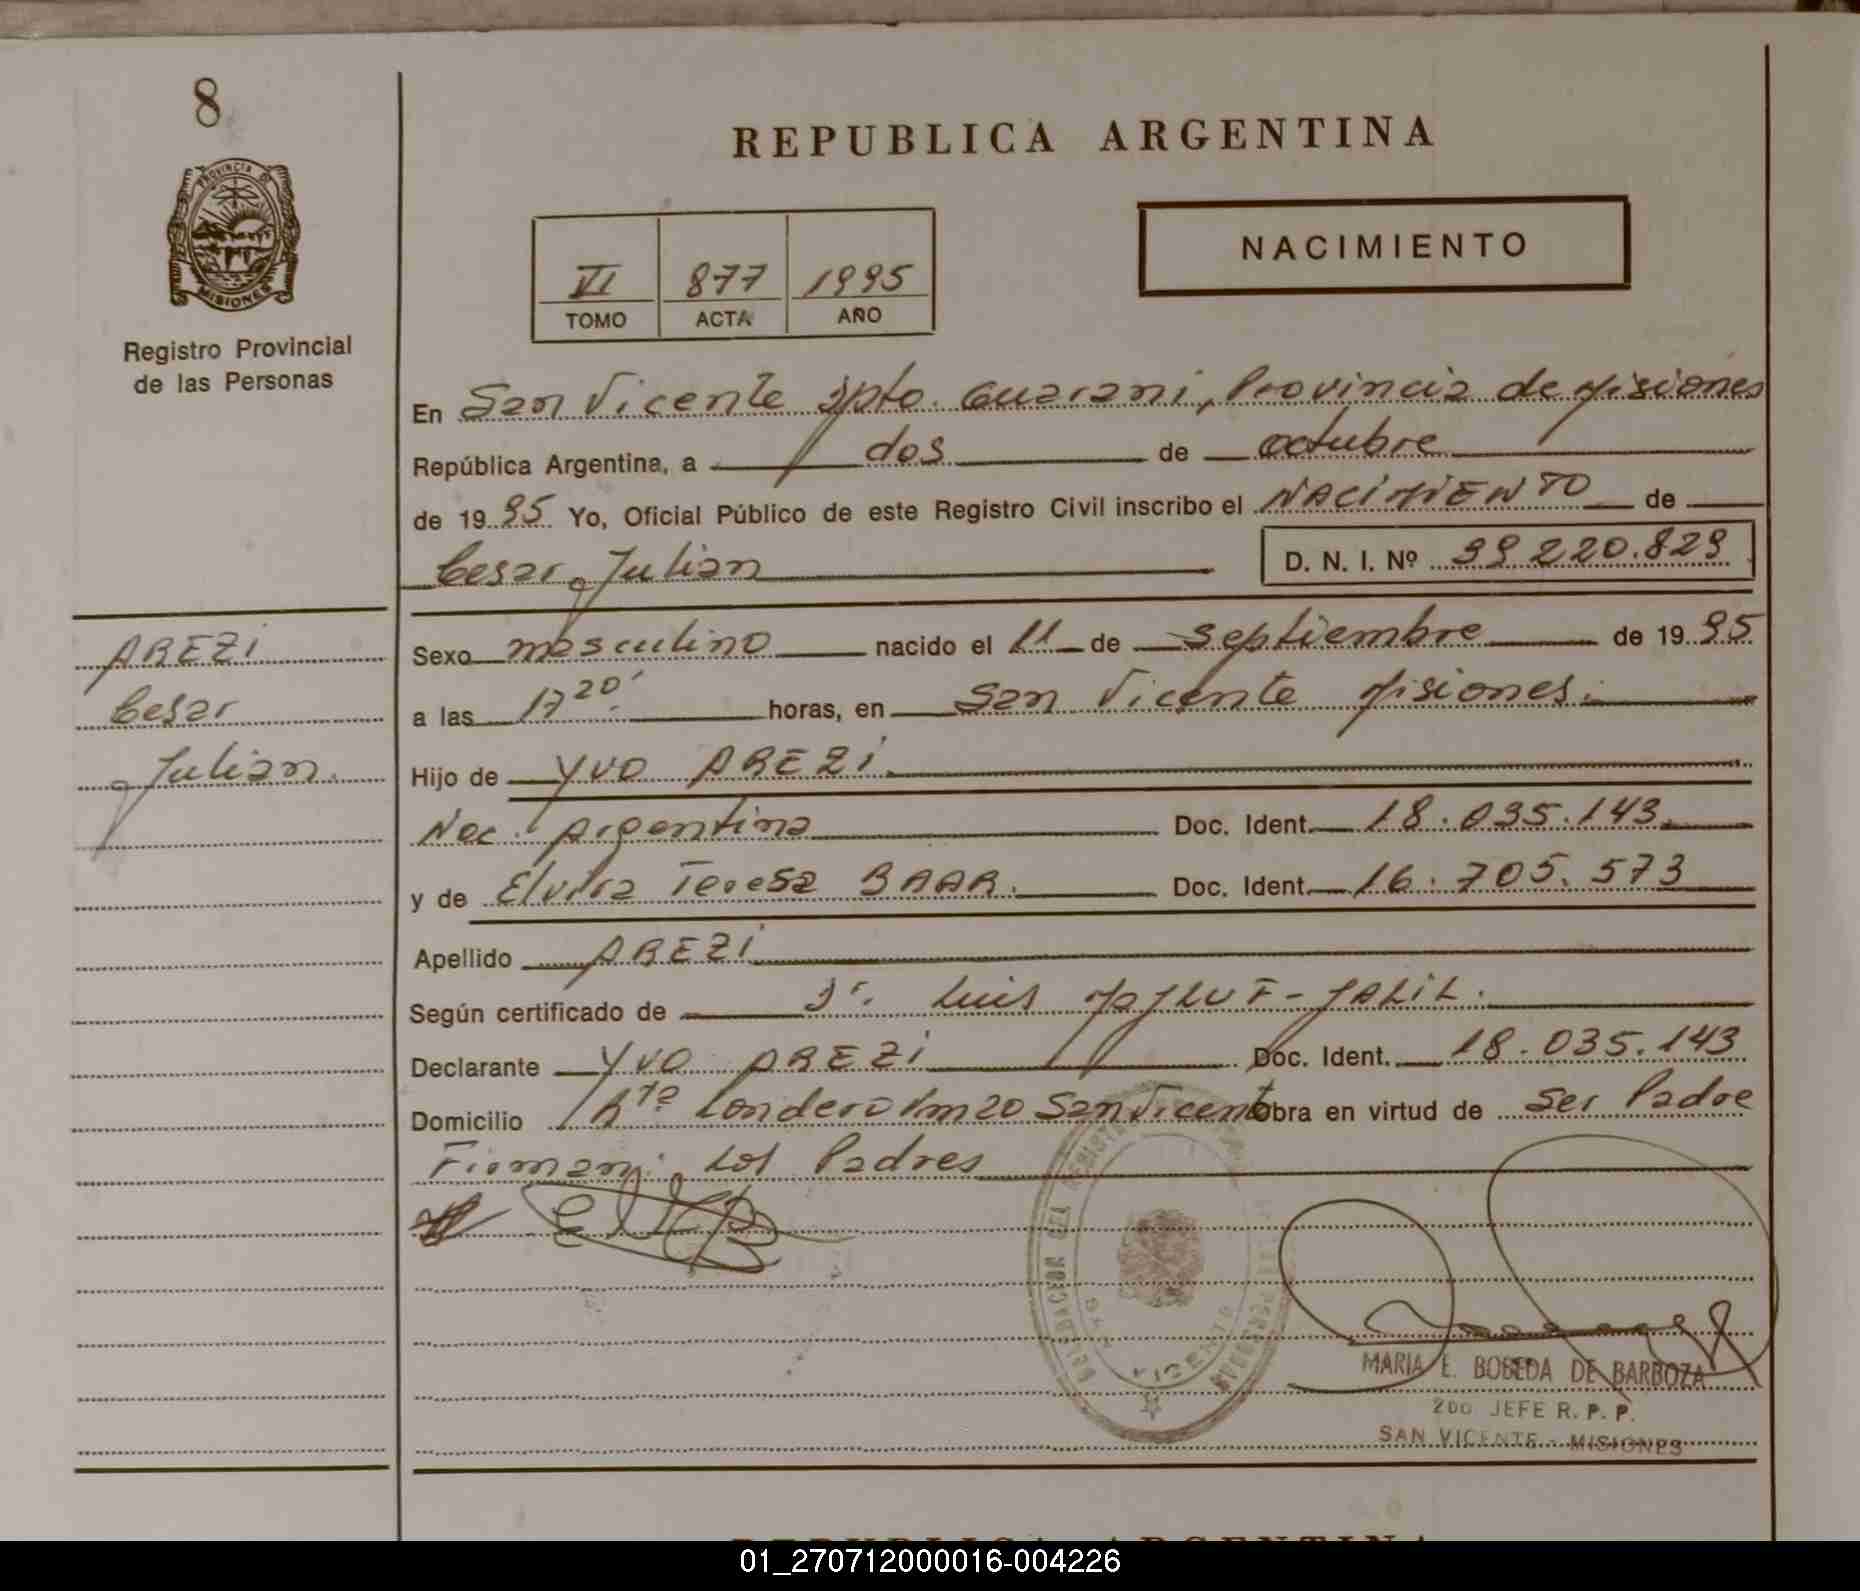 8
REPUBLICA ARGENTINA
PROVINCIA DE
MISIONES
Registro Provincial
de las Personas
VI 877 1995
TOMO ACTA AÑO
NACIMIENTO
En San Vicente Dpto. Guarani, Provincia de Misiones
República Argentina, a dos de octubre
de 1995 Yo, Oficial Público de este Registro Civil inscribo el NACIMIENTO de
Cesar Julian D. N. I. Nº 39220.829
AREZI
Cesar
Julian.
Sexo masculino nacido el 11 de septiembre de 1995
a las 17 20' horas, en San Vicente Misiones.
Hijo de Yvo AREZI.
Nac. Argentina Doc. Ident. 18.035.143.
y de Elvira Teresa BAAR. Doc. Ident. 16.705.573
Apellido AREZI
Según certificado de Dr. Luis JALIL.
Declarante Yvo AREZI Doc. Ident. 18.035.143
Domicilio Rta Londero Km 20 San Vicente Obra en virtud de Ser Padre
Firman: Los Padres
DELEGACION DEL REGISTRO
SAN VICENTE
MARIA E. BOBEDA DE BARBOZA
2do JEFE R. P. P.
SAN VICENTE - MISIONES
REPUBLICA ARGENTINA
01_270712000016-004226